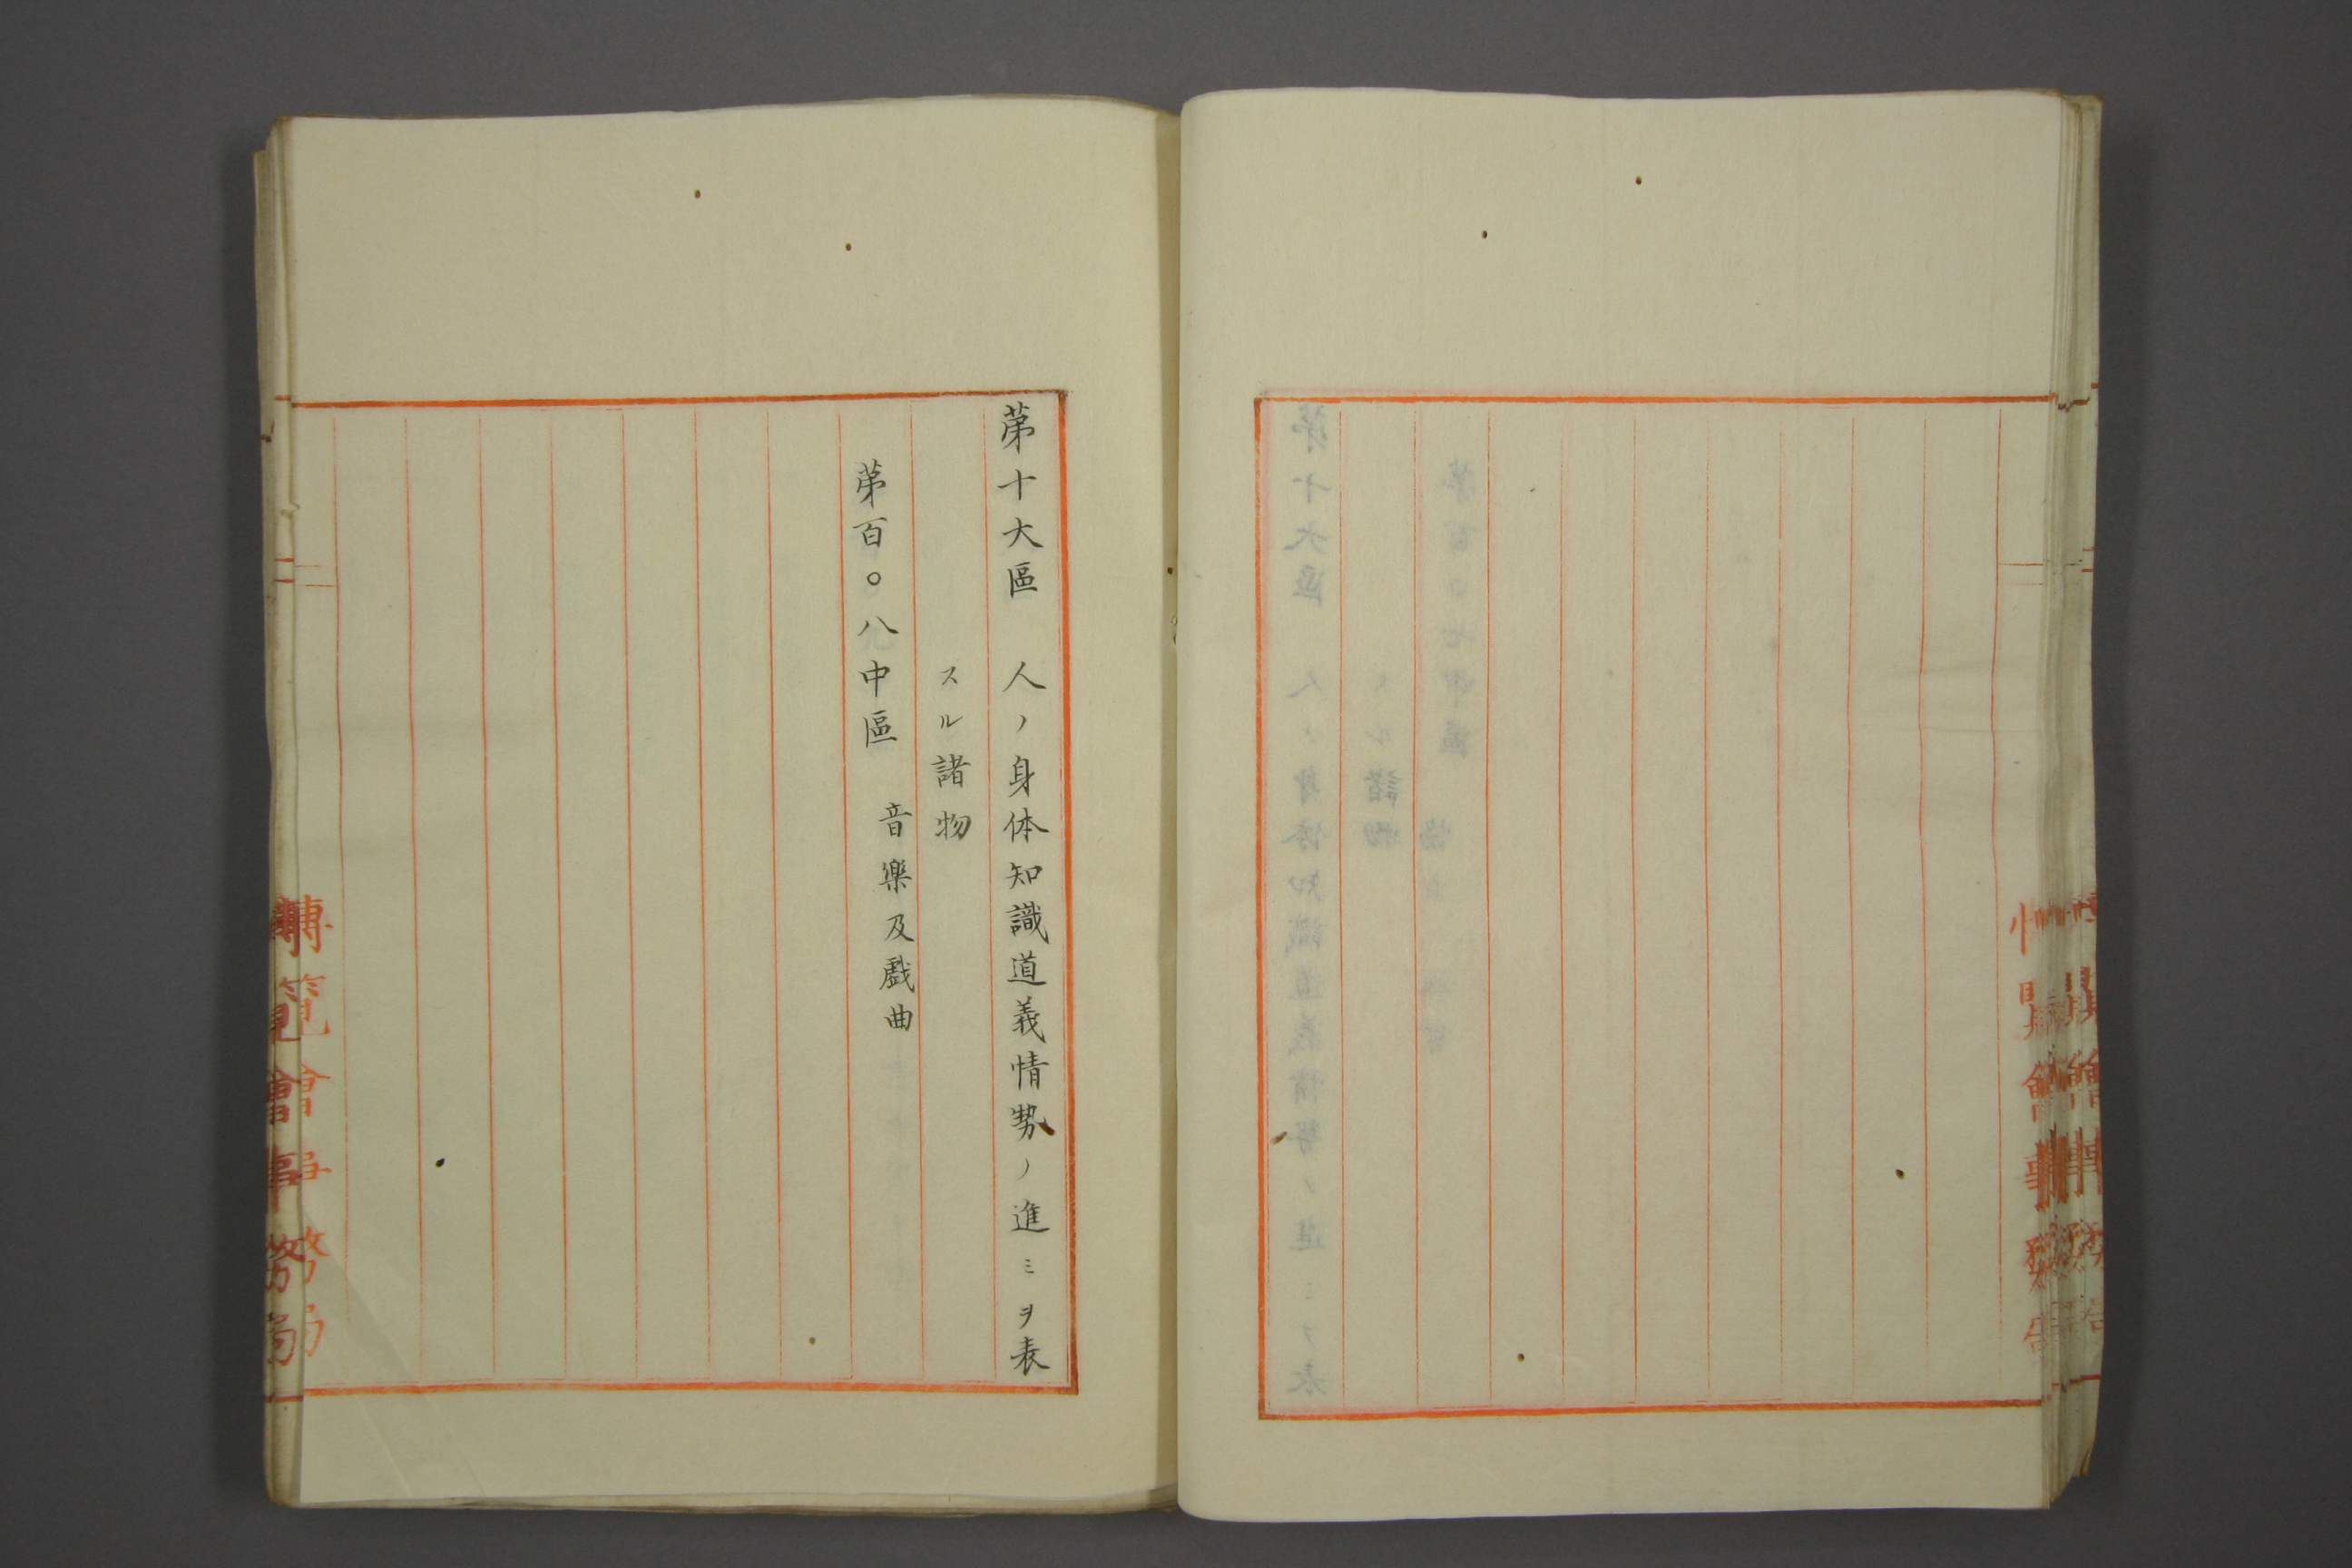 第十大區　人ノ身体知識道義情勢ノ進ミヲ表
スル諸物
第百〇八中區　音樂及戯曲
博覧會事務局